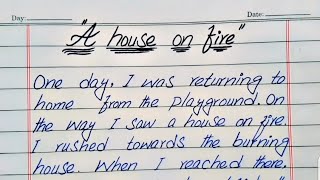 Day:
Date:
"A house on fire"
One day, I was returning to
home from the playground. On
the way I saw a house on fire.
I rushed towards the burning
house. When I reached there,